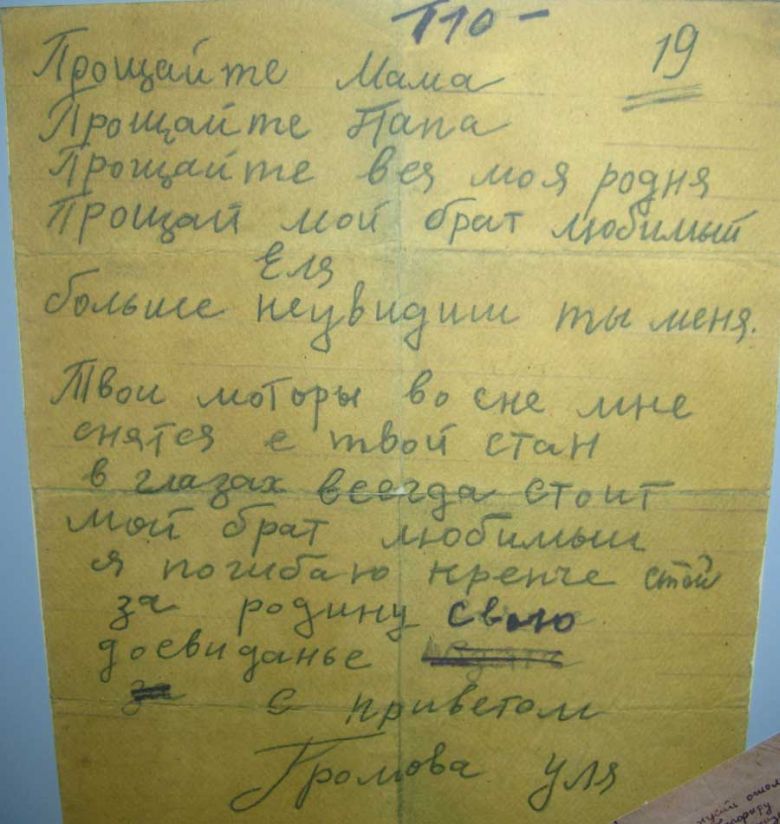 Т10 -
19
Прощайте Мама
Прощайте Папа
Прощайте вся моя родня
Прощай мой брат любимый
Еля
больше неувидиш ты меня.
Твои моторы во сне мне
снятся е твой стан
в глазах всегда стоит
мой брат любимыи
я погибаю крепче стой
за родину свою
досвиданье
за
с приветом
Громова Уля